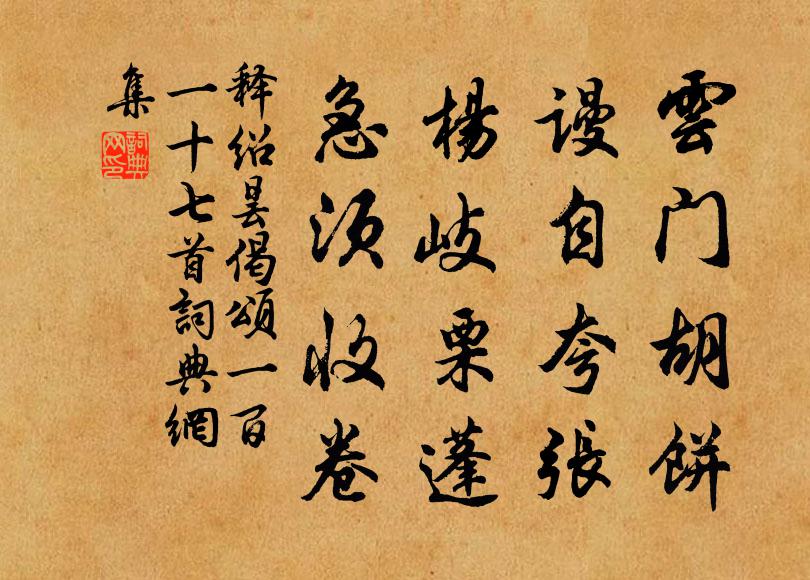 雲门胡餅
谩自夸張
楊岐栗蓬
急须收卷
释绍昙偈頌一百
一十七首詞典網
集
詞典
网印